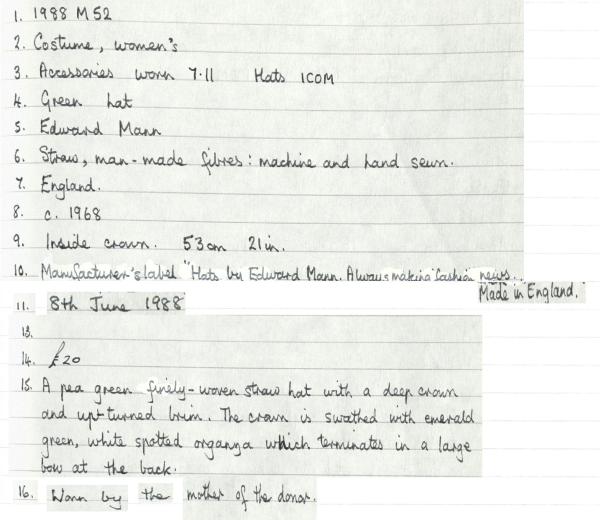 1. 1988 M 52
2. Costume, women's
3. Accessories worn 7.11 Hats ICOM
4. Green hat
5. Edward Mann
6. Straw, man-made fibres: machine and hand sewn.
7. England.
8. c. 1968
9. Inside crown. 53cm 21in.
10. Manufacturer's label "Hats by Edward Mann. Always making fashion news.
Made in England.
11. 8th June 1988
13.
14. £20
15. A pea green finely-woven straw hat with a deep crown
and up-turned brim. The crown is swathed with emerald
green, white spotted organza which terminates in a large
bow at the back.
16. Worn by the mother of the donor.